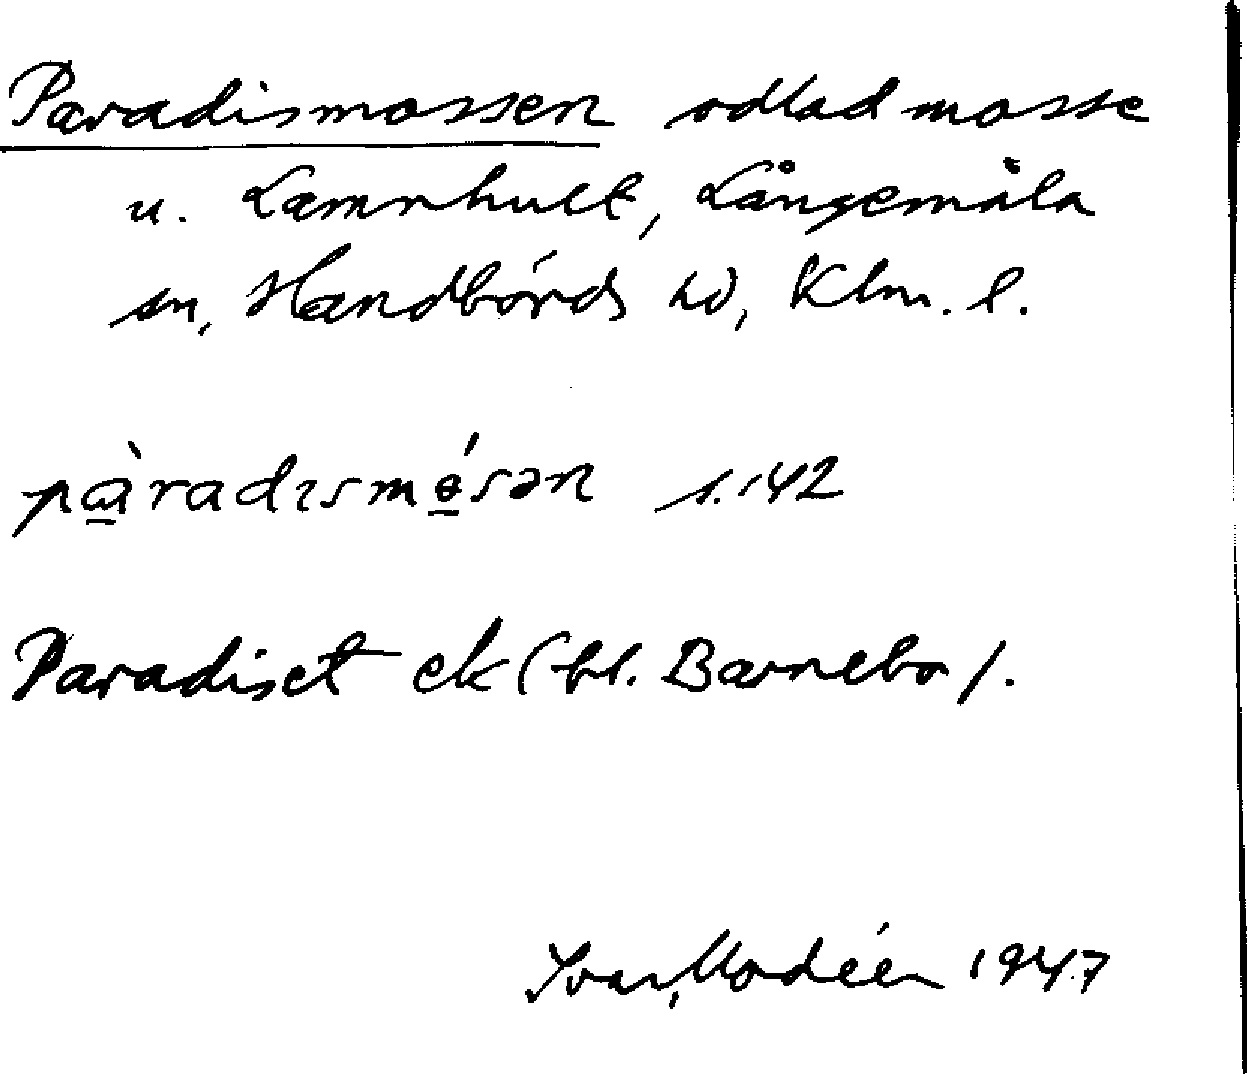 Paradismossen odlad mosse
u. Lamnhult, Långemåla
sn, Handbörds hd, Klm. l.
pàradɪsmɵ́sən s. 142
Paradiset ek (bl. Barnebo).
Ivar Modéer 1947